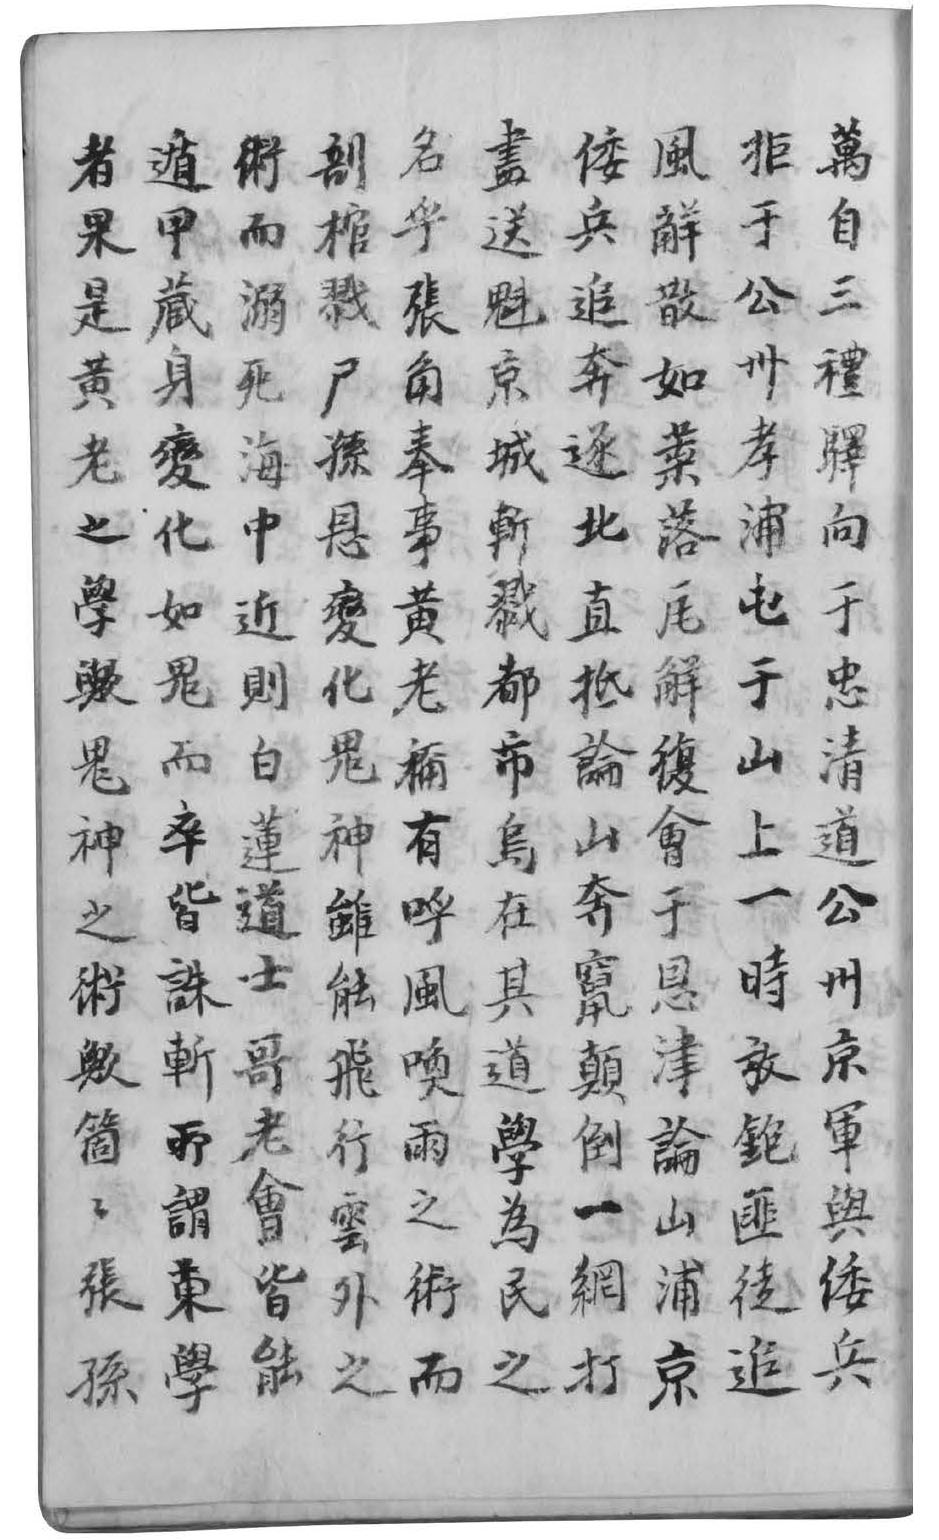 萬自三禮驛向于忠清道公州京軍與倭兵
拒于公州孝浦屯于山上一時放鉋匪徒追
風觧散如葉落瓦解復會于恩津論山浦京
倭兵追奔逐北直抵論山奔竄顛倒一網打
盡送魁京城斬戮都市烏在其道學為民之
名乎張角奉事黃老稱有呼風喚雨之術而
剖棺戮尸孫恩變化鬼神雖能飛行雲外之
術而溺死海中近則白蓮道士哥老會皆能
遁甲蔵身變化如鬼而卒皆誅斬所謂東學
者果是黃老之學歟鬼神之術歟箇〻張孫